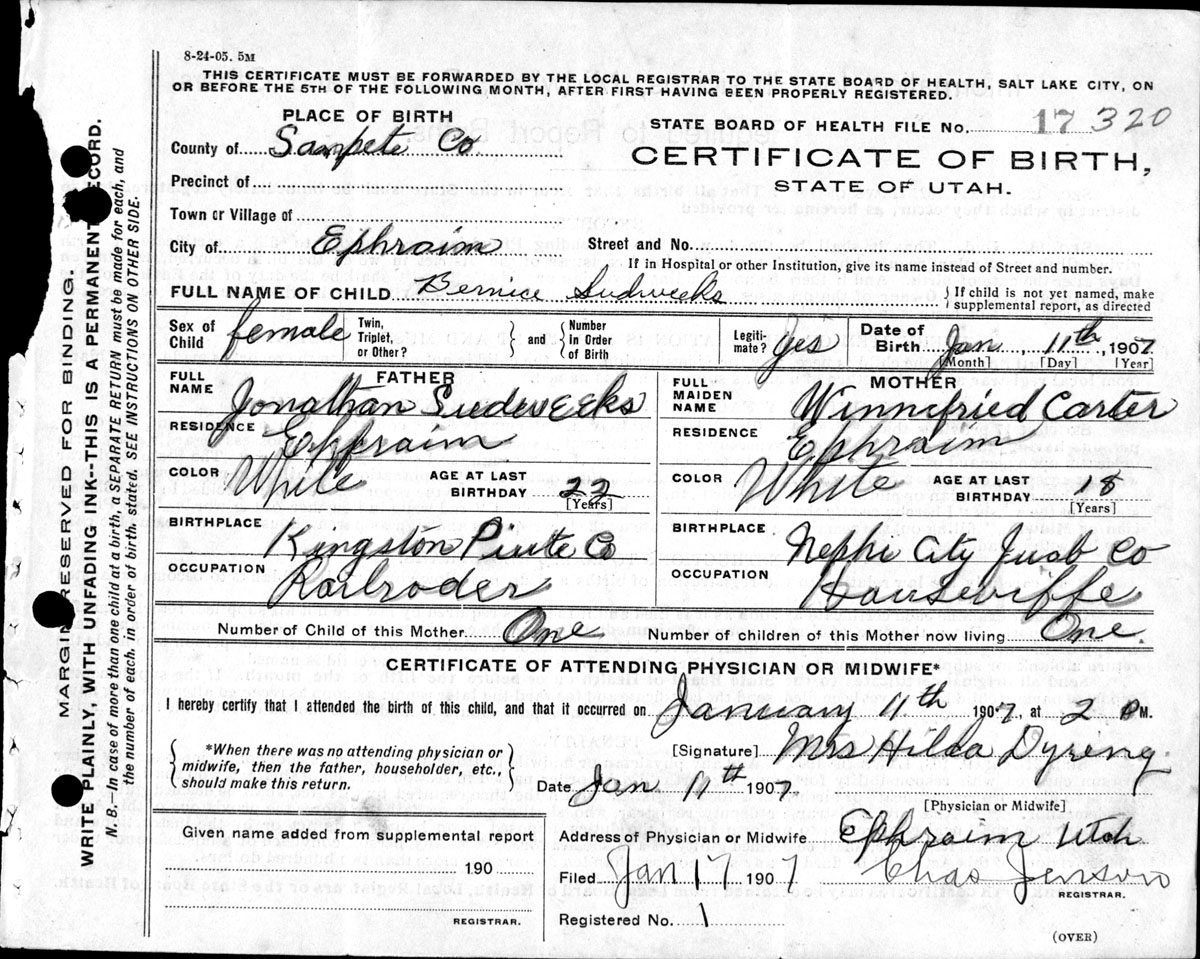 8-24-05. 5M
THIS CERTIFICATE MUST BE FORWARDED BY THE LOCAL REGISTRAR TO THE STATE BOARD OF HEALTH, SALT LAKE CITY, ON
OR BEFORE THE 5TH OF THE FOLLOWING MONTH, AFTER FIRST HAVING BEEN PROPERLY REGISTERED.
PLACE OF BIRTH
County of Sanpete Co
Precinct of
Town or Village of
City of Ephraim
STATE BOARD OF HEALTH FILE No. 17 320
CERTIFICATE OF BIRTH,
STATE OF UTAH.
Street and No.
If in Hospital or other Institution, give its name instead of Street and number.
FULL NAME OF CHILD Bernice Sudweeks } If child is not yet named, make
supplemental report, as directed
Sex of Child female
Twin, Triplet, or Other? } and { Number in Order of Birth
Legiti-mate? yes
Date of Birth Jan, 11th, 1907
[Month] [Day] [Year]
FATHER
FULL NAME Jonathan Sudweeks
RESIDENCE Ephraim
COLOR White AGE AT LAST BIRTHDAY 22
[Years]
BIRTHPLACE Kingston Piute Co
OCCUPATION Railroder
MOTHER
FULL MAIDEN NAME Winnifried Carter
RESIDENCE Ephraim
COLOR White AGE AT LAST BIRTHDAY 18
[Years]
BIRTHPLACE Nephi City Juab Co
OCCUPATION Housewiffe
Number of Child of this Mother One Number of children of this Mother now living One.
CERTIFICATE OF ATTENDING PHYSICIAN OR MIDWIFE*
I hereby certify that I attended the birth of this child, and that it occurred on January 11.th 1907, at 2 PM.
{ *When there was no attending physician or
midwife, then the father, householder, etc.,
should make this return. }
[Signature] Mrs Hilda Dyreng.
Date Jan 11th 1907
[Physician or Midwife]
Given name added from supplemental report
190
REGISTRAR.
Address of Physician or Midwife Ephraim Utah
Filed Jan 17 1907 Chas Jenson
REGISTRAR.
Registered No. 1
(OVER)
MARGIN RESERVED FOR BINDING.
WRITE PLAINLY, WITH UNFADING INK--THIS IS A PERMANENT RECORD.
N. B.—In case of more than one child at a birth, a SEPARATE RETURN must be made for each, and
the number of each, in order of birth, stated. SEE INSTRUCTIONS ON OTHER SIDE.